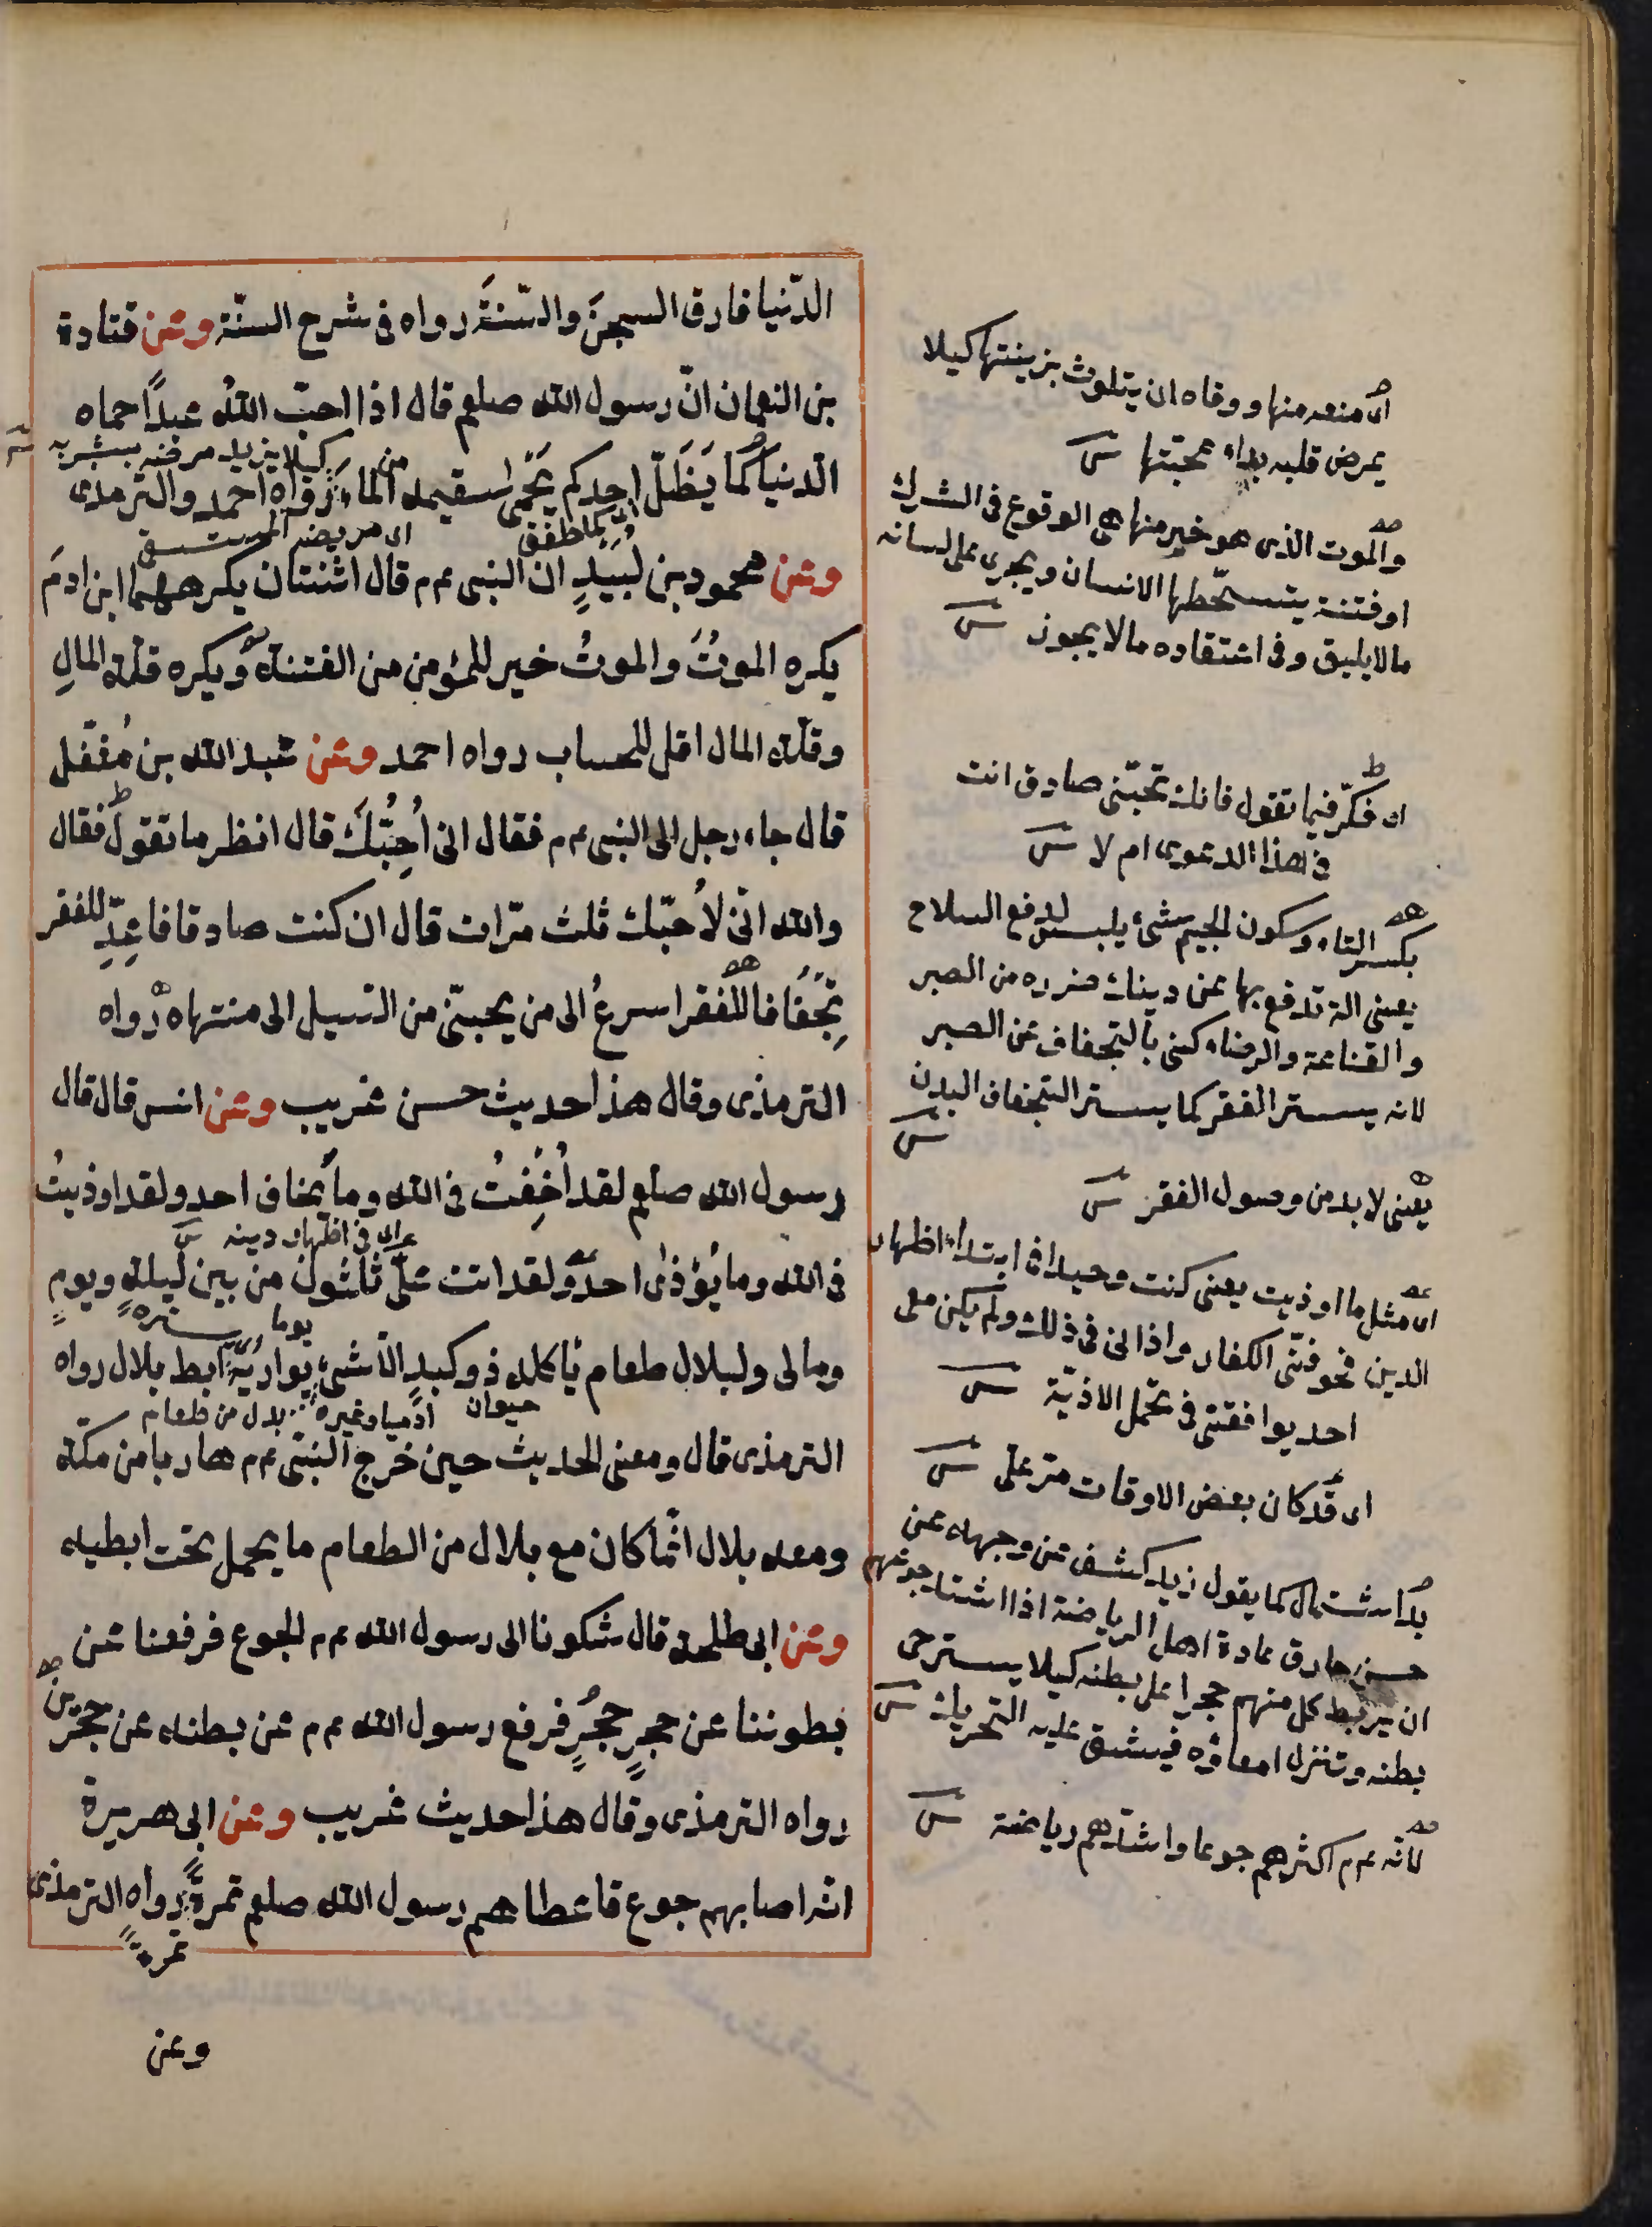 الدّنيا فارق السجنَ والسّنةَ رواه فى شرح السنّة وعن قتادة
بن النعمان انّ رسول الله صلعم قال اذا احبّ اللهُ عبداً حماه
كيلا يزيد مرضه بشربه
الدنيا كما يَظَلّ احدكم يَحْمى سقيمه من الماء رواه احمد والترمذى
اى كما طفق
اى مريضه المستسقى
وعن محمود بن لَبيدٍ ان النبى عم قال اثنتان يكرههما ابن ادمَ
يكره الموتَ والموتُ خير للمؤمن من الفتنة ويكره قلة المالِ
وقلّة المال اقل للحساب رواه احمد وعن عبد الله بن مُغفّل
قال جاء رجل الى النبى عم فقال انى اُحِبُّكَ قال انظر ما تقول فقال
والله انّى لاُحبّك ثلث مرّات قال ان كنت صادقا فاعِدّ للفقر
تِجْفَافا للفقر اسرعُ الى من يحبّنى من السيل الى منتهاه رواه
الترمذى وقال هذا حديث حسن غريب وعن انس قال قال
رسول الله صلعم لقد اُخِفْتُ فى الله وما يخاف احد ولقد اوذيتُ
اى فى اظهار دينه
فى الله وما يُؤذى احدٌ ولقد اتت علىّ ثلثون من بين ليلةٍ ويومٍ
يوما
يستره
ومالى ولبلال طعام ياكله ذو كبدٍ الّا شىء يواريه ابط بلال رواه
حيوان ادميا وغيره
بدل من طعام
الترمذى قال ومعنى الحديث حين خرج النبّى عم هاربا من مكّة
ومعه بلال انّما كان مع بلال من الطعام ما يحمل تحت ابطيه
وعن ابى طلحة قال شكونا الى رسول الله عم الجوع فرفعنا عن
بطوننا عن حجرٍ حجرٍ فرفع رسول الله عم عن بطنه عن حجرين
رواه الترمذى وقال هذا حديث غريب وعن ابى هريرة
انّه اصابهم جوع فاعطاهم رسول الله صلعم تمرةً رواه الترمذى
تمرةً
وعن
اى منعه منها ووقاه ان يتلوث بزينتها كيلا
يمرض قلبه بداء محبتها
والموت الذى هو خير منها هى الوقوع فى الشرك
او فتنة يتسخّطها الانسان ويجرى على لسانه
ما لا يليق وفى اعتقاده ما لا يجوز
اى فكّر فيما تقول فانك تحبّنى صادق انت
فى هذا الدعوى ام لا
بكسر التاء وسكون الجيم شىء يلبس لدفع السلاح
يعنى الة تدفع بها عن دينك ضرره من الصبر
والقناعة والرضاء كنى بالتجفاف عن الصبر
لانه يستر الفقر كما يستر التجفاف البدن
يعنى لا بد من وصول الفقر
اى مثل ما اوذيت يعنى كنت وحيدا فى ابتداء اظهار
الدين فخوفنى الكفار واذانى فى ذلك ولم يكن معى
احد يوافقنى فى تحمل الاذيّة
اى قد كان بعض الاوقات مرّ علىّ
بدل اشتمال كما يقول زيد كشف عن وجهه عن
حسن خارق عادة اهل الرياضة اذا اشتد جوعهم
ان يربط كل منهم حجرا على بطنه كيلا يسترخى
بطنه وتنزل امعاؤه فيشق عليه التحريك
لانّه عم اكثرهم جوعا واشدّهم رياضة